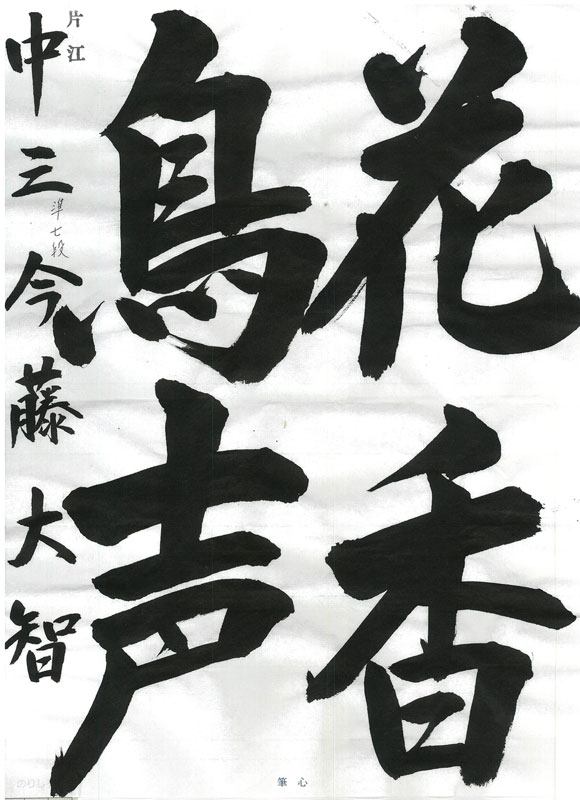 花香
鳥声
片江
中三 今藤大智
準七段
心筆
のりしろ